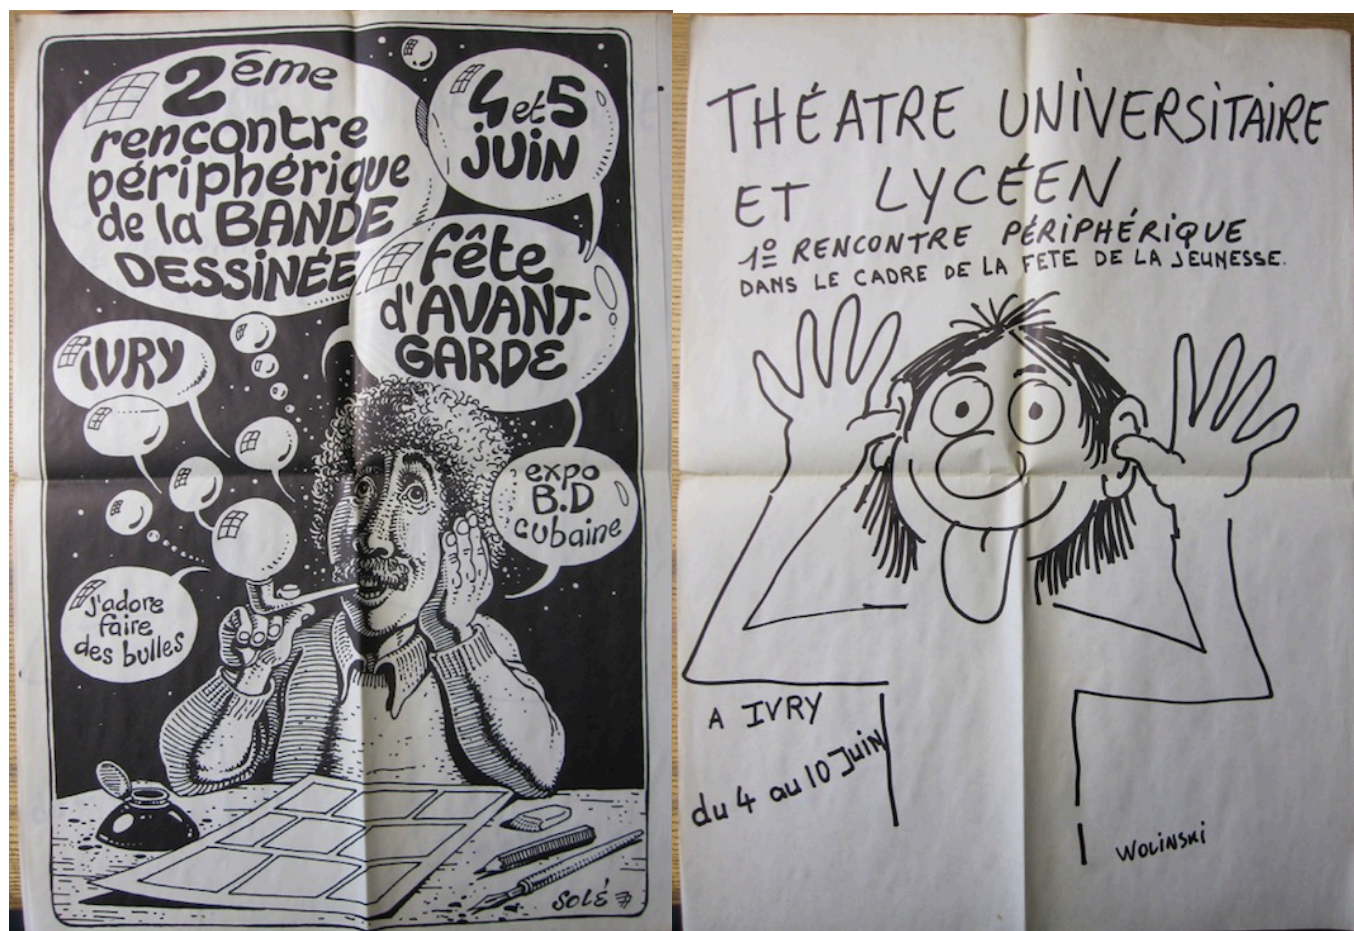 2ème
rencontre
périphérique
de la BANDE
DESSINÉE
4 et 5
JUIN
fête
d'AVANT-
GARDE
iVRY
expo
B.D
cubaine
j'adore
faire
des bulles
SOLÉ
THÉATRE UNIVERSITAIRE
ET LYCÉEN
1º RENCONTRE PÉRIPHÉRIQUE
DANS LE CADRE DE LA FETE DE LA JEUNESSE.
A IVRY
du 4 au 10 Juin
WOLiNSKi